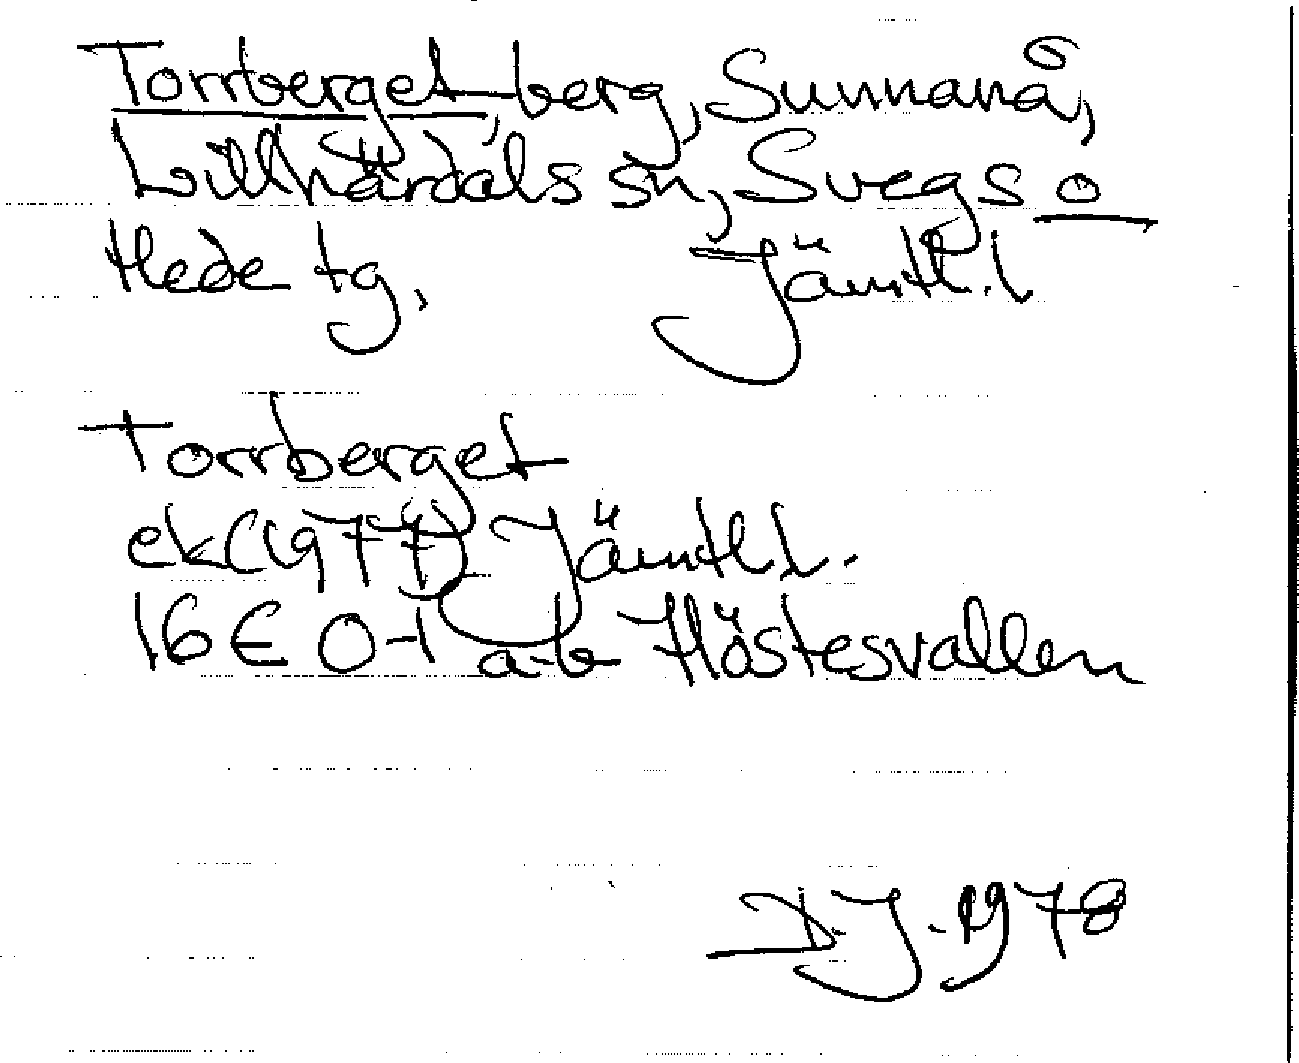 Torrberget, berg, Sunnanå,
Lillhärdals sn, Svegs o
Hede tg, Jämtl. l
Torrberget
ek (1977) Jämtl l.
16 E 0-1 a-b Höstesvallen
D.J. 1978